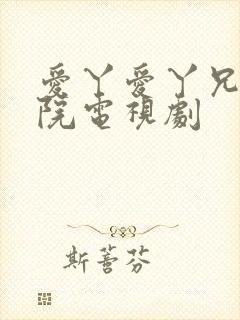 愛丫愛丫兄
院電視劇
斯薈芬